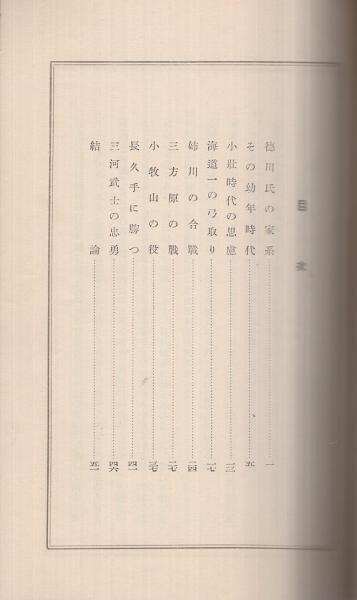 目次
德川氏の家系 一
その幼年時代 五
小壯時代の思慮 一三
海道一の弓取り 一七
姉川の合戰 二四
三方原の戰 二七
小牧山の役 三七
長久手に勝つ 四一
三河武士の忠勇 四六
結論 五一